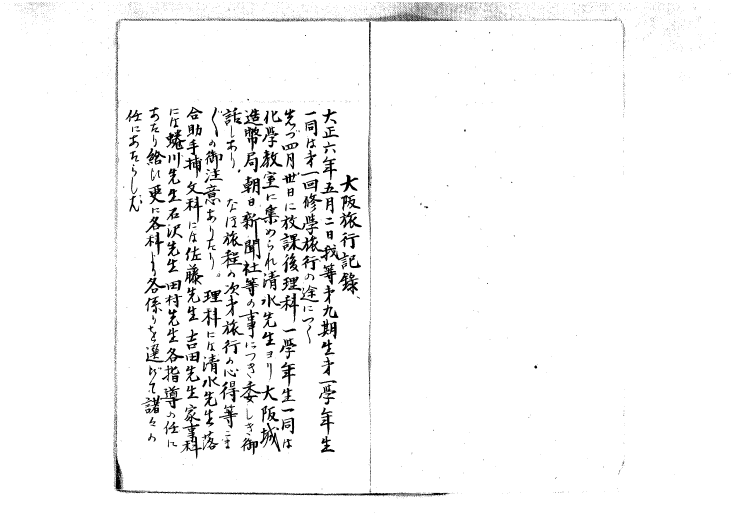 大阪旅行記録、
大正六年五月二日我等才九期生才一學年生
一同は才一回修學旅行の途につく
先づ四月卅日に放課後理科一學年生一同は
化學教室に集められ清水先生ヨリ大阪城
造幣局朝日新聞社等の事につき委しき御
話しあり、なほ旅程の次才旅行の心得等こま
〴〵の御注意ありたり。理科には清水先生落
合助手揷文科には佐藤先生吉田先生家事科
には蜷川先生石沢先生田村先生各指導の任に
あたり給ひ更に各科より各係りを選びて諸々の
任にあたらしむ